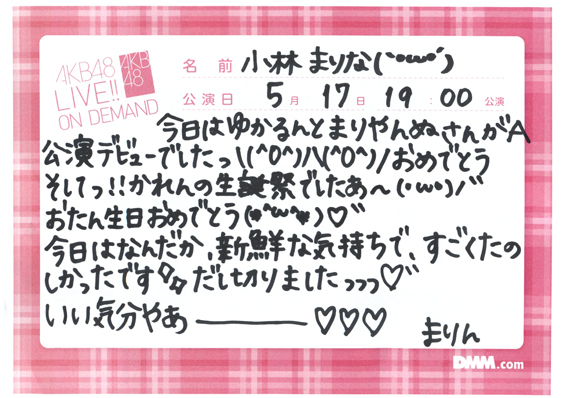 AKB48
LIVE!!
ON DEMAND
AKB
48
名前 小林まりな(`･ω･´)
公演日 5月17日19:00公演
今日はゆかるんとまりやんぬさんがA
公演デビューでしたっ\(^O^)/\(^O^)/おめでとう
そしてっ!!かれんの生誕祭でしたあ〜(･ω･)ノ"
おたん生日おめでとう(*^ω^*)♡"
今日はなんだか、新鮮な気持ちで、すごくたの
しかったですだし切りましたっっっ♡"
いい気分やあ―――♡♡♡
まりん
DMM.com